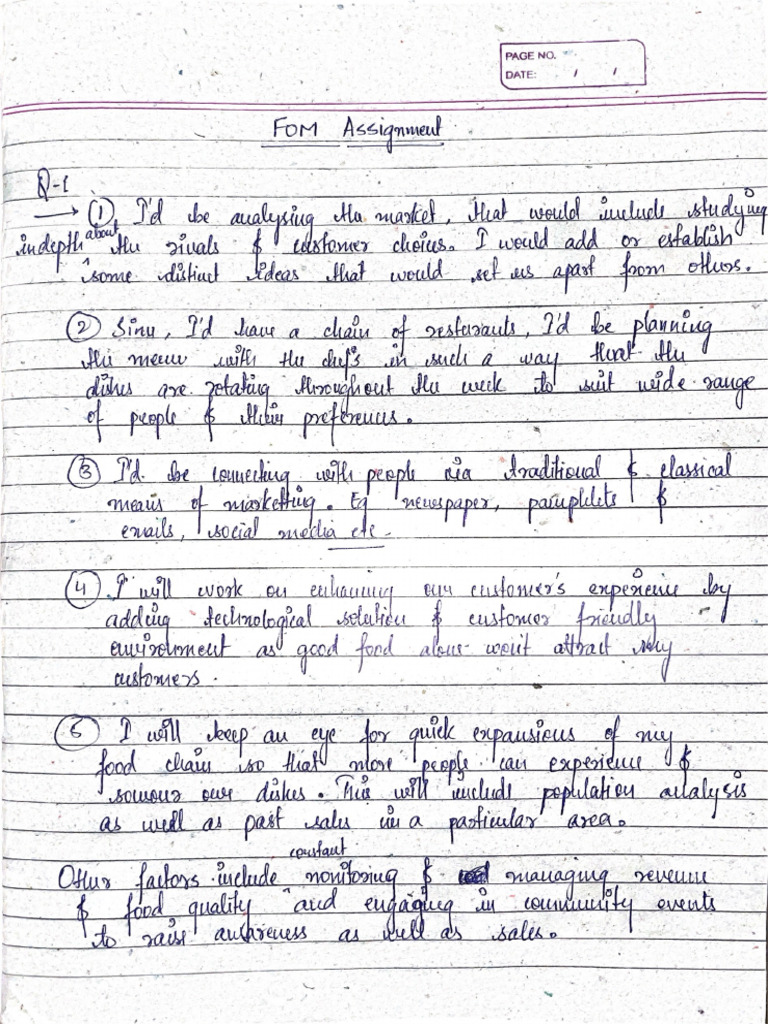 PAGE NO.
DATE: / /
FOM Assignment
Q-1
→ ① I'd be analysing the market, that would include studying
indepth about the rivals & customer choices. I would add or establish
some distinct ideas that would set us apart from others.
② Since, I'd have a chain of resturants, I'd be planning
the menu with the chefs in such a way that the
dishes are rotating throughout the week to suit wide range
of people & their preferences.
③ I'd be connecting with people via traditional & classical
means of marketting. Eg newspaper, pamphlets &
emails, social media etc -
④ I will work on enhancing our customer's experience by
adding technological solution & customer friendly
environment as good food alone won't attract my
customers.
⑤ I will keep an eye for quick expansions of my
food chain so that more people can experience &
savour our dishes. This will include population analysis
as well as past sales in a particular area.
constant
Other factors include monitoring & managing revenue
& food quality and engaging in community events
to raise awareness as well as sales.